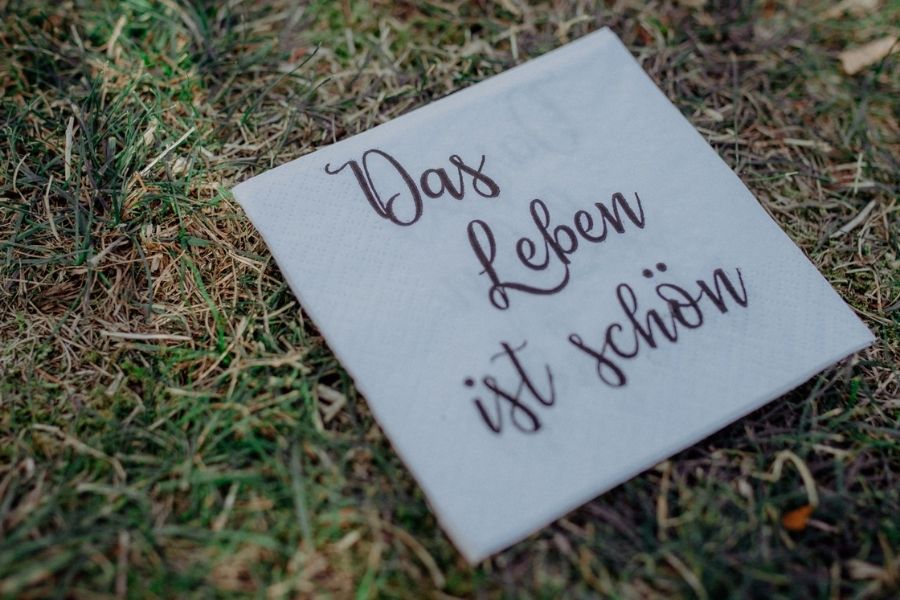 Das
Leben
ist schön